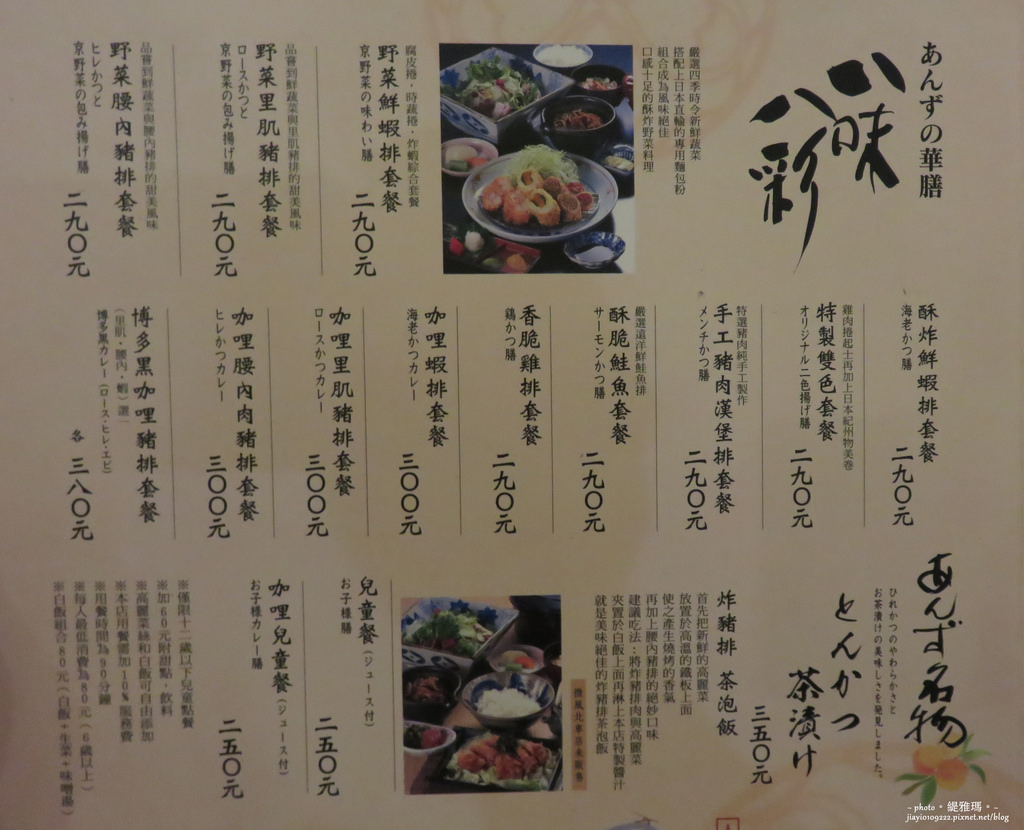 あんずの華膳
八味
八彩
嚴選四季時令新鮮蔬菜
搭配上日本直輸的專用麵包粉
組合成為風味絕佳
口感十足的酥炸野菜料理
腐皮捲．時蔬捲．炸蝦綜合套餐
野菜鮮蝦排套餐
京野菜の味わい膳
二九〇元
品嘗到鮮蔬菜與里肌豬排的甜美風味
野菜里肌豬排套餐
ロースかつと
京野菜の包み揚げ膳
二九〇元
品嘗到鮮蔬菜與腰內豬排的甜美風味
野菜腰內豬排套餐
ヒレかつと
京野菜の包み揚げ膳
二九〇元
酥炸鮮蝦排套餐
海老かつ膳
二九〇元
雞肉捲起士再加上日本紀州物美卷
特製雙色套餐
オリジナル二色揚げ膳
二九〇元
特選豬肉純手工製作
手工豬肉漢堡排套餐
メンチかつ膳
二九〇元
嚴選遠洋鮮鮭魚排
酥脆鮭魚套餐
サーモンかつ膳
二九〇元
香脆雞排套餐
鶏かつ膳
二九〇元
咖哩蝦排套餐
海老かつカレー
三〇〇元
咖哩里肌豬排套餐
ロースかつカレー
三〇〇元
咖哩腰內肉豬排套餐
ヒレかつカレー
三〇〇元
博多黑咖哩豬排套餐
（里肌．腰內．蝦）選一
博多黒カレー（ロース・ヒレ・エビ）
各 三八〇元
あんず名物
ひれかつのやわらかさと
お茶漬けの美味しさを発見しました。
とんかつ
茶漬け
炸豬排 茶泡飯
三五〇元
首先把新鮮的高麗菜
放置於高溫的鐵板上面
使之產生燒烤的香氣
再加上腰內豬排的絕妙口味
建議吃法：將炸豬排肉與高麗菜
夾置於白飯上面再淋上本店特製醬汁
就是美味絕佳的炸豬排茶泡飯
微風北車店未販售
兒童餐（ジュース付）
お子様膳
二五〇元
咖哩兒童餐（ジュース付）
お子様カレー膳
二五〇元
※僅限十二歲以下兒童點餐
※加60元附甜點．飲料
※高麗菜絲和白飯可自由添加
※本店用餐需加10%服務費
※用餐時間為90分鐘
※每人最低消費為80元（6歲以上）
※白飯組合80元（白飯＋生菜＋味噌湯）
~ photo。緹雅瑪。~
jiayio109222.pixnet.net/blog